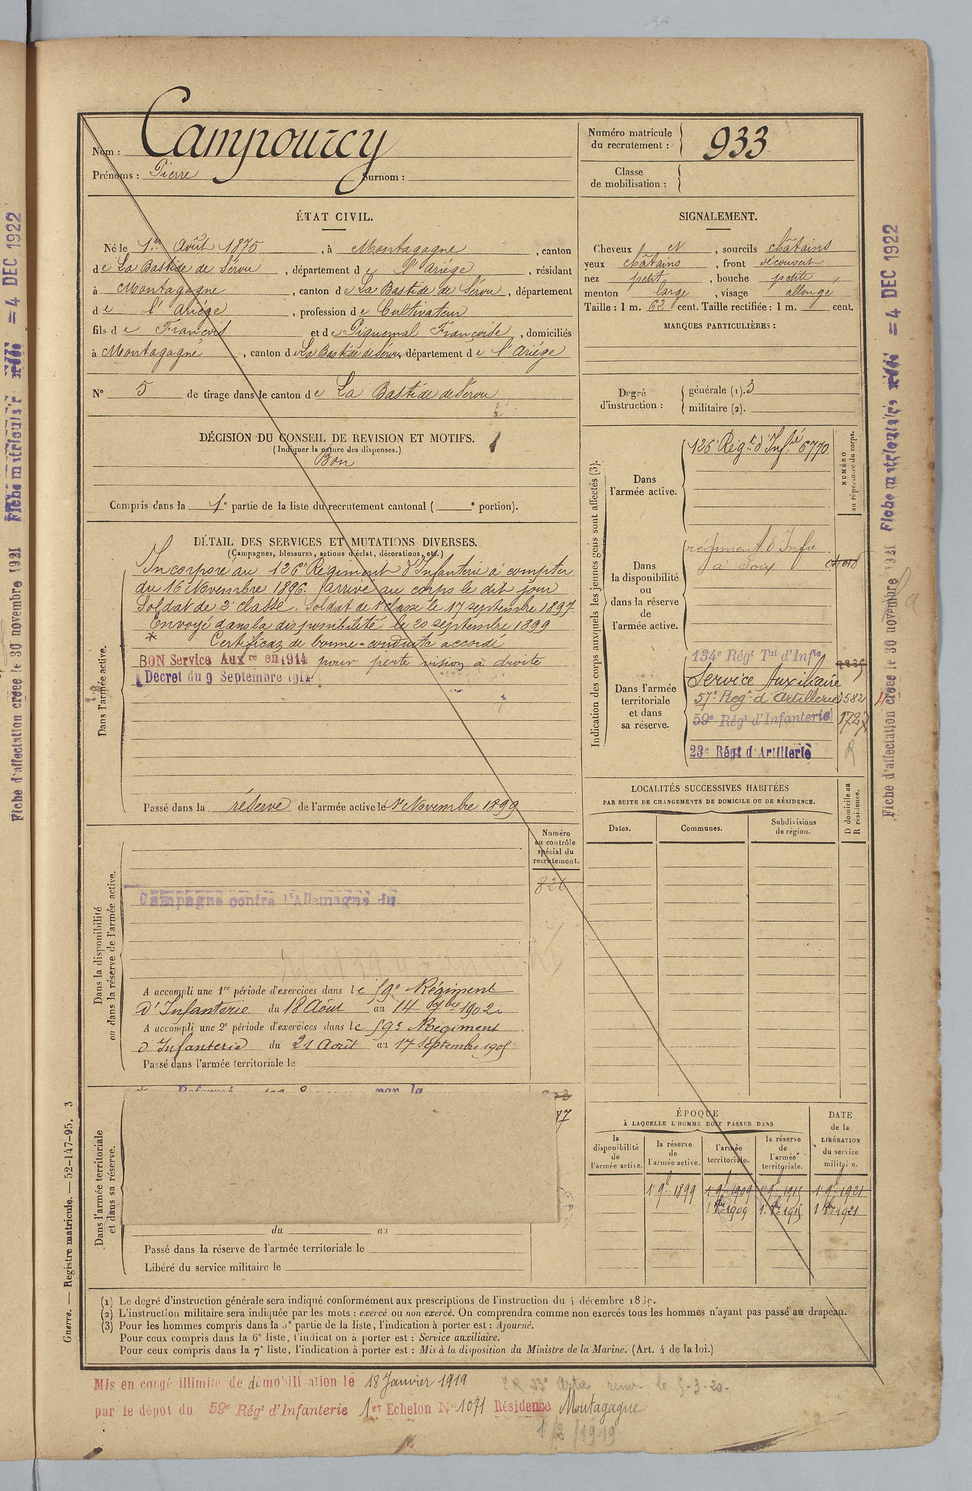 Nom : Campourcy
Prénoms : Pierre Surnom :
Numéro matricule du recrutement : 933
Classe de mobilisation :
ÉTAT CIVIL.
Né le 1er Août 1875, à Montagagne, canton
de La Bastide de Sérou, département de l'Ariège, résidant
à Montagagne, canton de La Bastide de Sérou, département
de l'Ariège, profession de Cultivateur
fils de François et de Piquemal Françoise, domiciliés
à Montagagne, canton de La Bastide de Sérou, département de l'Ariège
N° 5 de tirage dans le canton de La Bastide de Sérou
SIGNALEMENT.
Cheveux et, sourcils châtains
yeux châtains, front découvert
nez petit, bouche petite,
menton large, visage allongé
Taille : 1 m. 63 cent. Taille rectifiée : 1 m. cent.
MARQUES PARTICULIÈRES :
Degré d'instruction : générale (1). 3
militaire (2).
DÉCISION DU CONSEIL DE REVISION ET MOTIFS.
(Indiquer la nature des dispenses.)
Bon
Compris dans la 1e partie de la liste du recrutement cantonal ( e portion).
DÉTAIL DES SERVICES ET MUTATIONS DIVERSES.
(Campagnes, blessures, actions d'éclat, décorations, etc.)
Dans l'armée active.
Incorporé au 126e Régiment d'Infanterie à compter
du 16 Novembre 1896. Arrivé au corps le dit jour
Soldat de 2e classe. Soldat de 1e classe le 17 septembre 1897
Envoyé dans la disponibilité le 20 septembre 1899
Certificat de bonne conduite accordé
BON Service Auxre en 1914 pour perte vision à droite
Décret du 9 Septembre 1914
Passé dans la réserve de l'armée active le 1er Novembre 1899
Indication des corps auxquels les jeunes gens sont affectés (3).
NUMÉRO au répertoire du corps.
Dans l'armée active.
126 Régt d'Infie 6770
Dans la disponibilité ou dans la réserve de l'armée active.
régiment d'Infie
à Foix
Dans l'armée territoriale et dans sa réserve.
134e Régt Tal d'Infie
Service Auxiliaire
57e Régt d'Artillerie 582
59e Régt d'Infanterie 1727
23e Régt d'Artillerie
R
LOCALITÉS SUCCESSIVES HABITÉES
PAR SUITE DE CHANGEMENTS DE DOMICILE OU DE RÉSIDENCE.
Dates. Communes. Subdivisions de région. D domicile ou R résidence.
Numéro au contrôle spécial du recrutement.
826
Dans la disponibilité ou dans la réserve de l'armée active.
Campagne contre l'Allemagne du
A accompli une 1re période d'exercices dans le 59e Régiment
d'Infanterie du 18 Août au 14 7bre 1902
A accompli une 2e période d'exercices dans le 59e Régiment
d'Infanterie du 21 Août au 17 Septembre 1905
Passé dans l'armée territoriale le
Dans l'armée territoriale et dans sa réserve.
par la
du au
Passé dans la réserve de l'armée territoriale le
Libéré du service militaire le
ÉPOQUE
À LAQUELLE L'HOMME DOIT PASSER DANS
la disponibilité de l'armée active. la réserve de l'armée active. l'armée territoriale. la réserve de l'armée territoriale.
DATE de la LIBÉRATION du service militaire.
1 9bre 1899 1 9bre 1909 1 9bre 1915 1 9bre 1921
1909 1915 1921
(1) Le degré d'instruction générale sera indiqué conformément aux prescriptions de l'instruction du 4 décembre 1889.
(2) L'instruction militaire sera indiquée par les mots : exercé ou non exercé. On comprendra comme non exercés tous les hommes n'ayant pas passé au drapeau.
(3) Pour les hommes compris dans la 5e partie de la liste, l'indication à porter est : Ajourné.
Pour ceux compris dans la 6e liste, l'indication à porter est : Service auxiliaire.
Pour ceux compris dans la 7e liste, l'indication à porter est : Mis à la disposition du Ministre de la Marine. (Art. 4 de la loi.)
Guerre. — Registre matricule. — 52-147-95. 3
Mis en congé illimité de démobilisation le 18 Janvier 1919
par le dépôt du 59e Régt d'Infanterie 1er Echelon N° 1071 Résidence Montagagne
renv. le 5-3-20.
1/2/1919
Fiche d'affectation créée le 30 novembre 1921 Fiche matriculaire = 4 DEC 1922
Fiche d'affectation créée le 30 novembre 1921 Fiche matriculaire = 4 DEC 1922